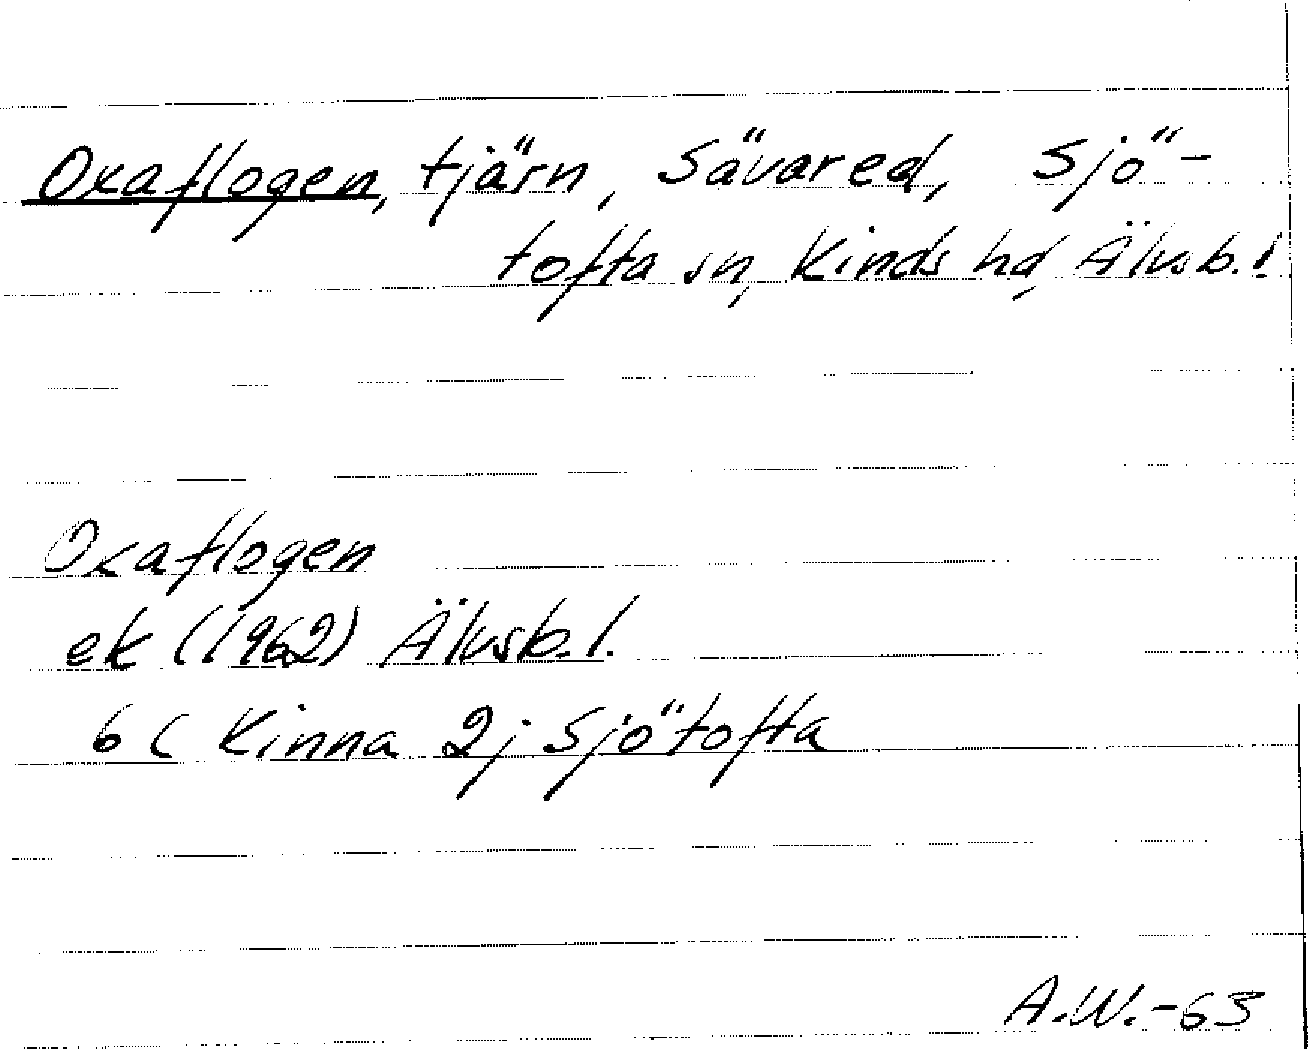 Oxaflogen, tjärn, Sävared, Sjö-
tofta sn, Kinds hd, Älvsb.l.
Oxaflogen
ek (1962) Älvsb.l.
6 C Kinna 2j Sjötofta
A.W.-63